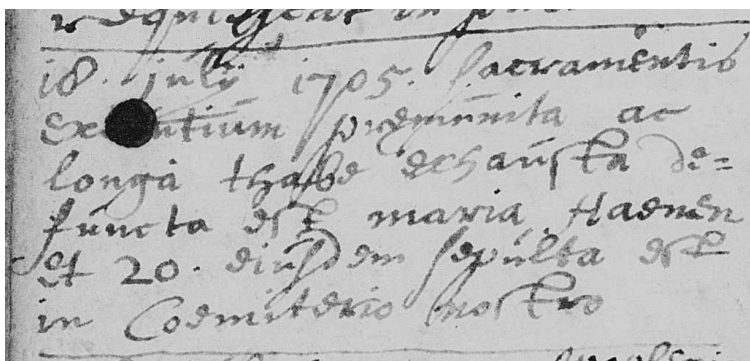 requiescat in pace
18. julij 1705. sacramentis
ex untium premunita ac
longa thabe exhausta de=
functa est maria Haenen
et 20. eiusdem sepulta est
in Coemiterio nostro